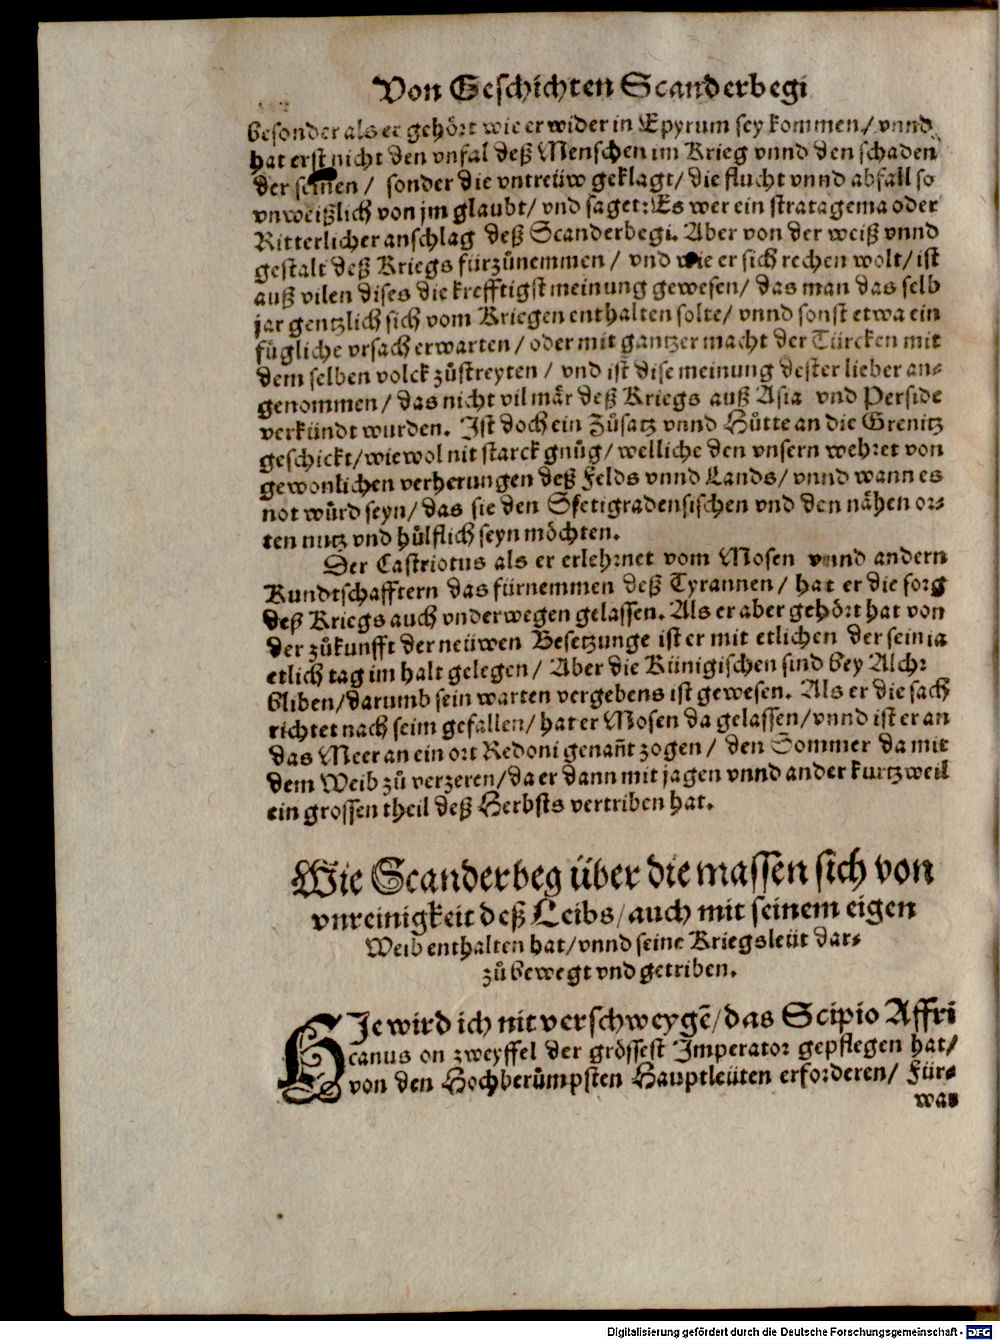 Von Geschichten Scanderbegi
besonder als er gehört wie er wider in Epyrum sey kommen / vnnd
hat erst nicht den vnfal deß Menschen im Krieg vnnd den schaden
der seinen / sonder die vntreüw geklagt / die flucht vnnd abfall so
vnweißlich von jm glaubt / vnd saget: Es wer ein stratagema oder
Ritterlicher anschlag deß Scanderbegi. Aber von der weiß vnnd
gestalt deß Kriegs fürzůnemmen / vnd wie er sich rechen wolt / ist
auß vilen dises die krefftigst meinung gewesen / das man das selb
jar gentzlich sich vom Kriegen enthalten solte / vnnd sonst etwa ein
fügliche vrsach erwarten / oder mit gantzer macht der Türcken mit
dem selben volck zůstreyten / vnd ist dise meinung dester lieber an-
genommen / das nicht vil mår deß Kriegs auß Asia vnd Perside
verkündt wurden. Ist doch ein Zůsatz vnnd Hütte an die Grenitz
geschickt / wiewol nit starck gnůg / welliche den vnsern wehret von
gewonlichen verherungen deß Felds vnnd Lands / vnnd wann es
not würd seyn / das sie den Sfetigradensischen vnd den nähen or-
ten nutz vnd hülflich seyn möchten.
Der Castriotus als er erlehrnet vom Mosen vnnd andern
Kundtschafftern das fürnemmen deß Tyrannen / hat er die sorg
deß Kriegs auch vnderwegen gelassen. Als er aber gehört hat von
der zůkunfft der neüwen Besetzunge ist er mit etlichen der sein ia
etlich tag im halt gelegen / Aber die Künigischen sind bey Alchr
bliben / darumb sein warten vergebens ist gewesen. Als er die sach
richtet nach seim gefallen / hat er Mosen da gelassen / vnnd ist er an
das Meer an ein ort Redoni genañt zogen / den Sommer da mit
dem Weib zů verzeren / da er dann mit jagen vnnd ander kurtzweil
ein grossen theil deß Herbsts vertriben hat.
Wie Scanderbeg über die massen sich von
vnreinigkeit deß Leibs / auch mit seinem eigen
Weib enthalten hat / vnnd seine Kriegsleüt dar-
zů bewegt vnd getriben.
HJe wird ich nit verschweygē / das Scipio Affri
canus on zweyffel der grössest Imperator gepflegen hat /
von den Hochberümpsten Hauptleüten erforderen / Für-
was
Digitalisierung gefördert durch die Deutsche Forschungsgemeinschaft - DFG